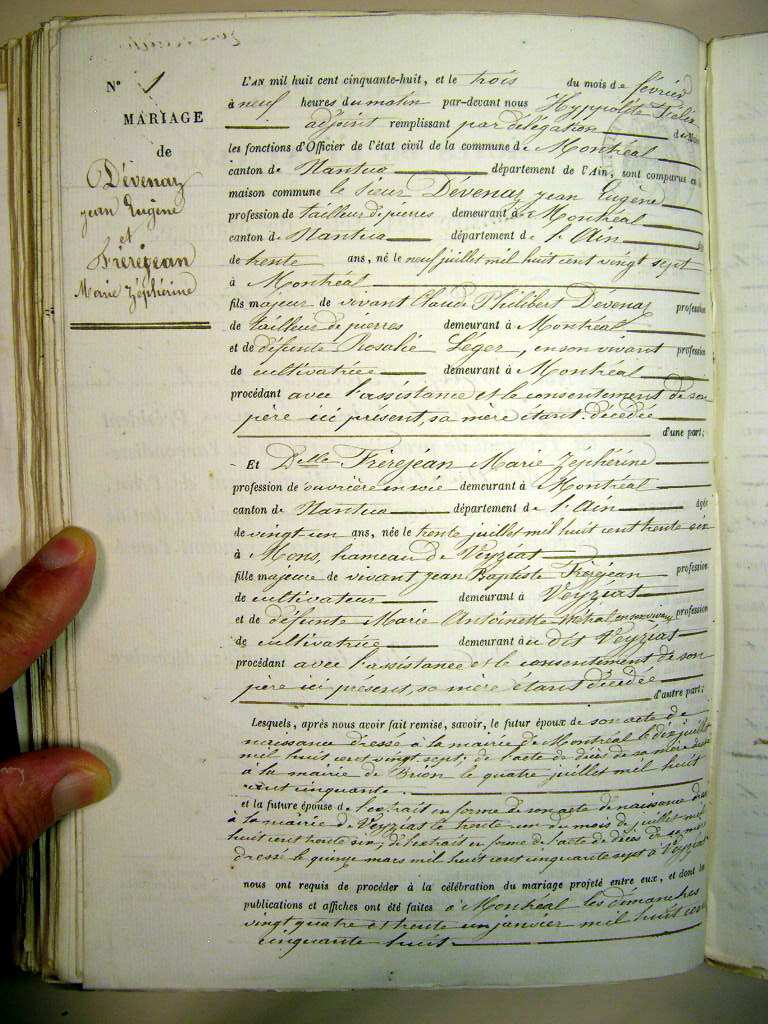 N° 1
MARIAGE
de
Dévenaz
jean Eugène
et
Frèrejean
Marie Zéphérine
L'AN mil huit cent cinquante-huit, et le trois du mois de février
à neuf heures du matin par-devant nous Hyppolite Félix
adjoint remplissant par délégation du Maire
les fonctions d'Officier de l'état civil de la commune de Montréal
canton de Nantua département de l'Ain, sont comparus en
maison commune le sieur Dévenaz jean Eugène
profession de tailleur de pierres demeurant à Montréal
canton de Nantua département de l'Ain
de trente ans, né le neuf juillet mil huit cent vingt sept
à Montréal
fils majeur de vivant Claude Philibert Dévenaz profession
de tailleur de pierres demeurant à Montréal
et de défunte Rosalie Léger, en son vivant profession
de cultivatrice demeurant à Montréal
procédant avec l'assistance et le consentement de son
père ici présent, sa mère étant décédée
d'une part;
Et Delle Frèrejéan Marie Zéphérine
profession de ouvrière en soie demeurant à Montréal
canton de Nantua département de l'Ain âgée
de vingt un ans, née le trente juillet mil huit cent trente six
à Mons, hameau de Veyziat
fille majeure de vivant jean Baptiste Frèrejéan profession
de cultivateur demeurant à Veyziat
et de défunte Marie Antoinette Métral en son vivant profession
de cultivatrice demeurant à u dit Veyziat
procédant avec l'assistance et le consentement de son
père ici présent, sa mère étant décédée
d'autre part;
Lesquels, après nous avoir fait remise, savoir, le futur époux de son acte de
naissance dressé à la mairie de Montréal le dix juillet
mil huit cent vingt sept; de l'acte de décès de sa mère dressé
à la mairie de Brion le quatre juillet mil huit
cent cinquante.
et la future épouse de l'extrait en forme de son acte de naissance dressé
à la mairie de Veyziat le trente un du mois de juillet mil
huit cent trente six; de l'extrait en forme de l'acte de décès de sa mère
dressé le quinze mars mil huit cent cinquante sept à Veyziat
nous ont requis de procéder à la célébration du mariage projeté entre eux, et dont les
publications et affiches ont été faites à Montréal les dimanches
vingt quatre et trente un janvier mil huit cent
cinquante huit